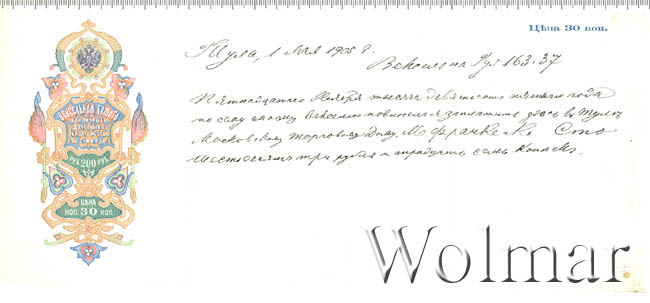 Цѣна 30 коп.
Тула, 1 Мая 1905 г.
Вексель на Руб 163.37
Пятнадцатого Ноября тысяча девятьсотъ пятого года
по сему моему векселю повиненъ я заплатить здѣсь въ Тулѣ
Московскому Торговому Дому М. Франке и Ко Сто
шестьдесятъ три рубля и тридцать семь копѣекъ.
ВЕКСЕЛЬНАЯ БУМАГА
РУБ. 200 РУБ.
ЦѢНА
КОП. 30 КОП.
Wolmar